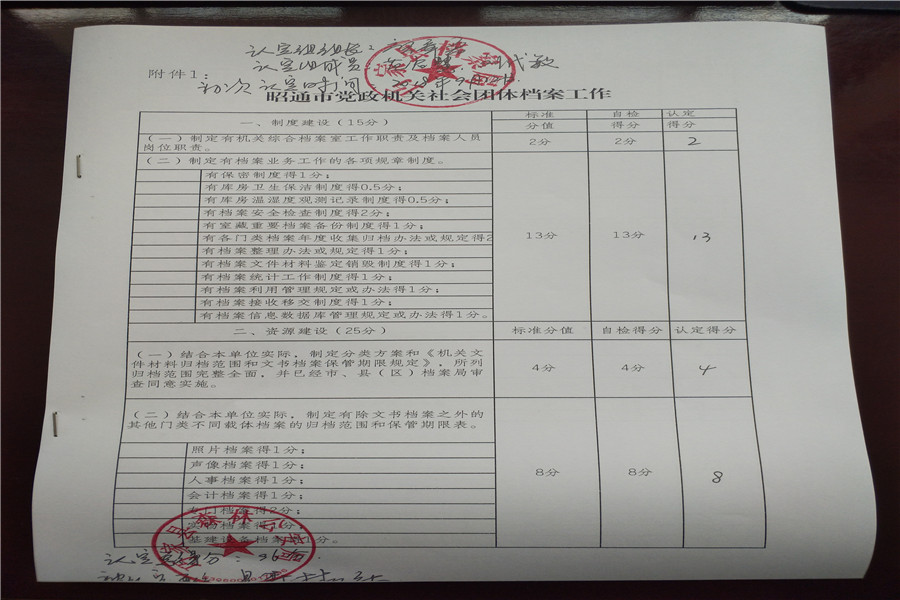 认定组组长：
认定组成员：
附件1：
初次认定时间
昭通市党政机关社会团体档案工作
一、制度建设（15分） 标准分值 自检得分 认定得分
（一）制定有机关综合档案室工作职责及档案人员 2分 2分 2
岗位职责。
（二）制定有档案业务工作的各项规章制度。
有保密制度得1分；
有库房卫生保洁制度得0.5分；
有库房温湿度观测记录制度得0.5分；
有档案安全检查制度得2分；
有室藏重要档案备份制度得1分；
有各门类档案年度收集归档办法或规定得2 13分 13分 13
有档案整理办法或规定得1分；
有档案文件材料鉴定销毁制度得1分；
有档案统计工作制度得1分；
有档案利用管理规定或办法得1分；
有档案接收移交制度得1分；
有档案信息数据库管理规定或办法得1分。
二、资源建设（25分） 标准分值 自检得分 认定得分
（一）结合本单位实际，制定分类方案和《机关文
件材料归档范围和文书档案保管期限规定》，所列
归档范围完整全面，并已经市、县（区）档案局审 4分 4分 4
查同意实施。
（二）结合本单位实际，制定有除文书档案之外的
其他门类不同载体档案的归档范围和保管期限表。
照片档案得1分；
声像档案得1分；
人事档案得1分； 8分 8分 8
会计档案得1分；
专门档案得2分；
实物档案得1分；
基建设备档案得1分。
认定 分：96